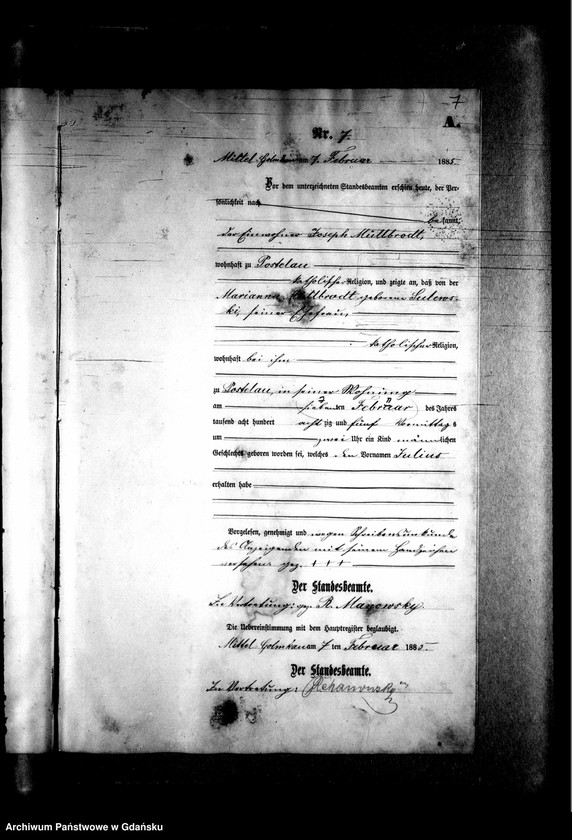 7
A.
Nr. 7.
Mittel Golmkau am 7. Februar 1885.
Vor dem unterzeichneten Standesbeamten erschien heute, der Per-
sönlichkeit nach
be kannt,
der Einwohner Joseph Müttbrodt,
wohnhaft zu Postelau
katholischer Religion, und zeigte an, daß von der
Marianna Müttbrodt geborene Sulews-
ki, seiner Ehefrau,
katholischer Religion,
wohnhaft bei ihm
zu Postelau, in seiner Wohnung
am siebenten Februar des Jahres
tausend acht hundert acht zig und fünf Vormittags
um zwei Uhr ein Kind männlichen
Geschlechts geboren worden sei, welches den Vornamen Julius
erhalten habe
Vorgelesen, genehmigt und wegen Schreibensunkunde
des Anzeigenden mit seinem Handzeichen
versehen gez. + + +
Der Standesbeamte.
In Vertretung: gez. R. Manowsky.
Die Uebereinstimmung mit dem Hauptregister beglaubigt.
Mittel Golmkau am 7 ten Februar 1885.
Der Standesbeamte.
In Vertretung:
Archiwum Państwowe w Gdańsku